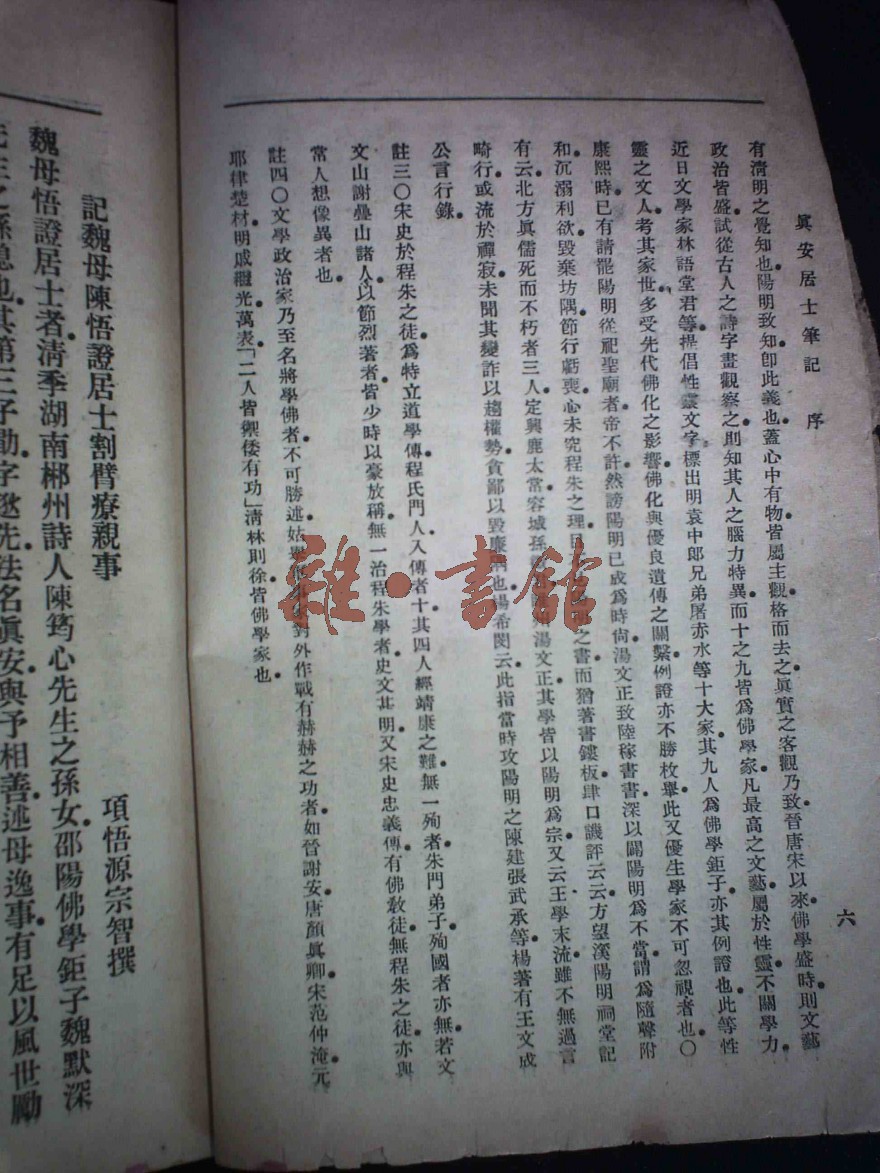 眞安居士筆記　序
六
有淸明之覺知也陽明致知卽此義也蓋心中有物皆屬主觀格而去之眞實之客觀乃致晉唐宋以來佛學盛時則文藝
政治皆盛試從古人之詩字畫觀察之則知其人之腦力特異而十之九皆爲佛學家凡最高之文藝屬於性靈不關學力
近日文學家林語堂君等提倡性靈文字標出明袁中郎兄弟屠赤水等十大家其九人爲佛學鉅子亦其例證也此等性
靈之文人考其家世多受先代佛化之影響佛化與優良遺傳之關繫例證亦不勝枚舉此又優生學家不可忽視者也〇
康熙時已有請罷陽明從祀聖廟者帝不許然謗陽明已成爲時尙湯文正致陸稼書書深以闢陽明爲不當謂爲隨聲附
和沉溺利欲毀棄坊隅節行虧喪心未究程朱之理目之書而猶著書鏤板肆口譏評云云方望溪陽明祠堂記
有云北方眞儒死而不朽者三人定興鹿太常容城孫湯文正其學皆以陽明爲宗又云王學末流雖不無過言
畸行或流於禪寂未聞其變詐以趨權勢貪鄙以毀廉也楊希閔云此指當時攻陽明之陳建張武承等楊著有王文成
公言行錄
註三〇宋史於程朱之徒爲特立道學傳程氏門人入傳者十其四人經靖康之難無一殉者朱門弟子殉國者亦無若文
文山謝疊山諸人以節烈著者皆少時以豪放稱無一治程朱學者史文其明又宋史忠義傳有佛敎徒無程朱之徒亦與
常人想像異者也
註四〇文學政治家乃至名將學佛者不可勝述姑舉對外作戰有赫赫之功者如晉謝安唐顏眞卿宋范仲淹元
耶律楚材明戚繼光萬表「二人皆禦倭有功」淸林則徐皆佛學家也
雜·書館
記魏母陳悟證居士割臂療親事
項悟源宗智撰
魏母悟證居士者淸季湖南郴州詩人陳筠心先生之孫女邵陽佛學鉅子魏默深
先生之孫媳也其第三子勛字逖先法名眞安與予相善述母逸事有足以風世勵